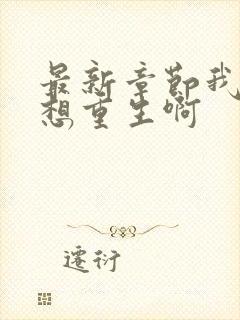 最新章节我
想重生啊
迁衍